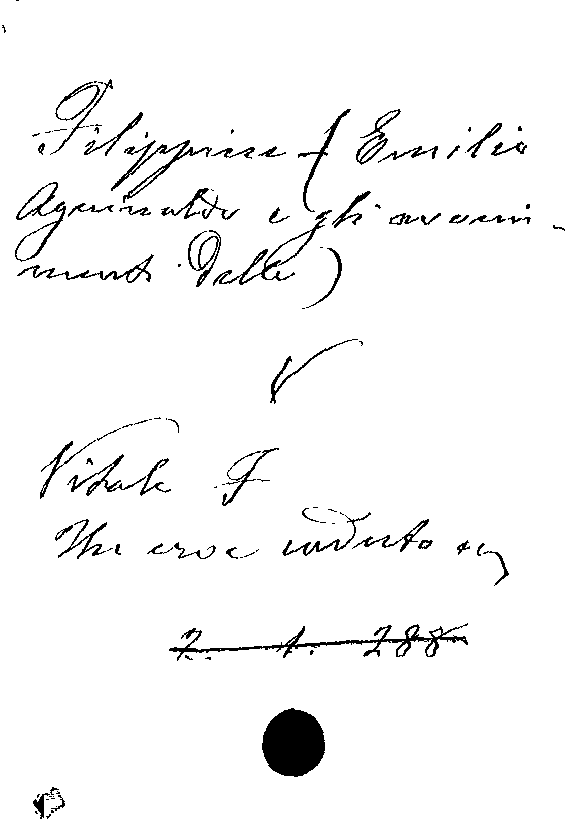 Filippine – (Emilio
Aguinaldo e gli avveni-
menti delle)
V
Vitale F
Un eroe caduto ecc
2. 1. 288